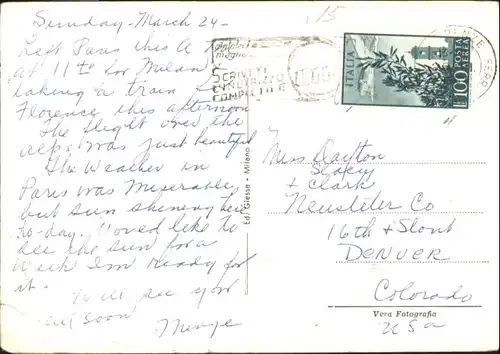 Sunday - March 24 -
Left Paris this A M
at 11 for Milan
taking a train
Florence this afternoon
The flight over the
alps was just beautiful
The weather in
Paris was miserable
but sun shining here
to-day. Would like to
see the sun for a
week I'm ready for
it.
see you
all soon
15
SCRIVETE
COMPLETO
ITALIA
POSTA
AEREA
L.100
FERR
Miss Dayton
+ Clark
Neusteter Co
16th & Stout
DENVER
Colorado
USA
Ed. Giesse - Milano
Vera Fotografia